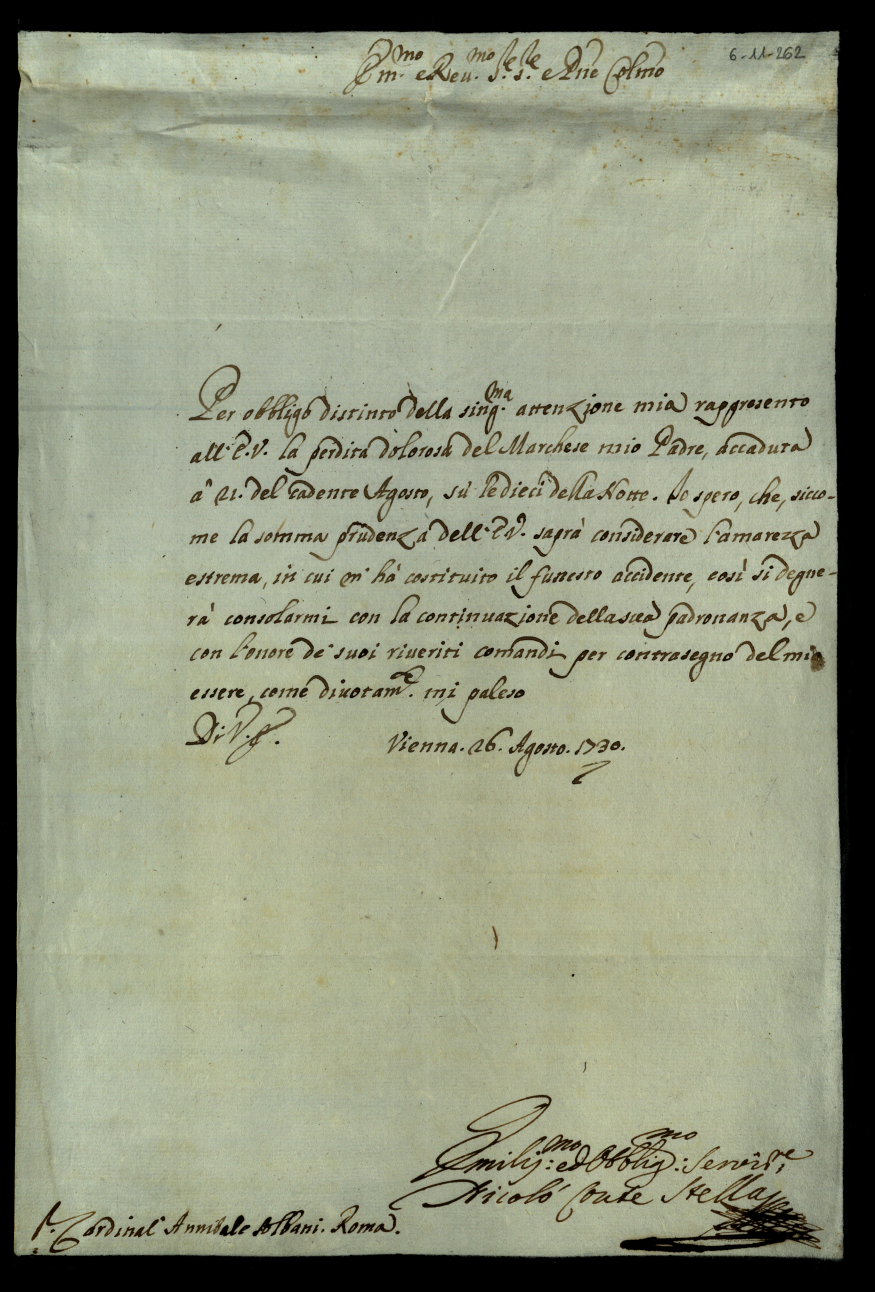 6-11-262
Em.mo e Reu.mo Sig.re Sig.re e Pñe Colmo
Per obbligo distinto della sing.ma attenzione mia rappresento
all'E.V. la perdita dolorosa del Marchese mio Padre, accaduta
a' 21. del cadente Agosto, sù le dieci della Notte. Io spero, che, sicco-
me la somma prudenza dell'E.V. saprà considerare l'amarezza
estrema, in cui m'hà costituito il funesto accidente, così si degne-
rà consolarmi con la continuazione della sua padronanza, e
con l'onore de' suoi riueriti comandi per contrasegno del mio
essere, come diuotam.te mi paleso
Di V.E.
Vienna. 26. Agosto. 1730.
Vmiliss.mo ed Obblig.mo Seruit.re
Nicolò Conte Stella
S.r Cardinal' Annibale Albani. Roma.